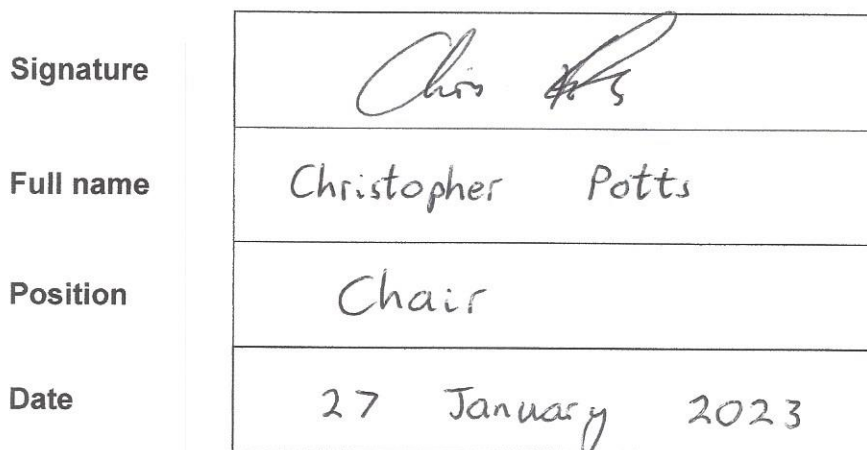 Signature Chris Potts
Full name Christopher Potts
Position Chair
Date 27 January 2023